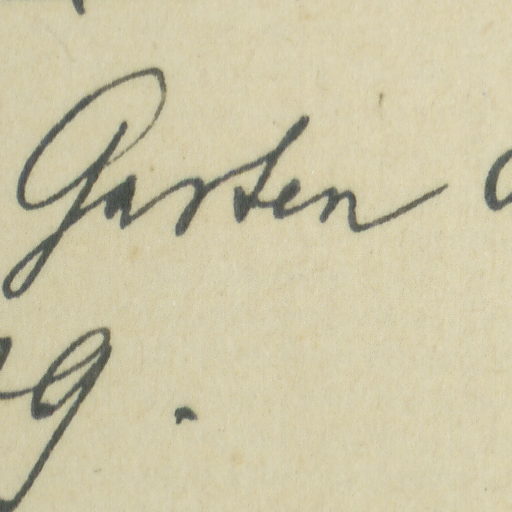 Garten
g.